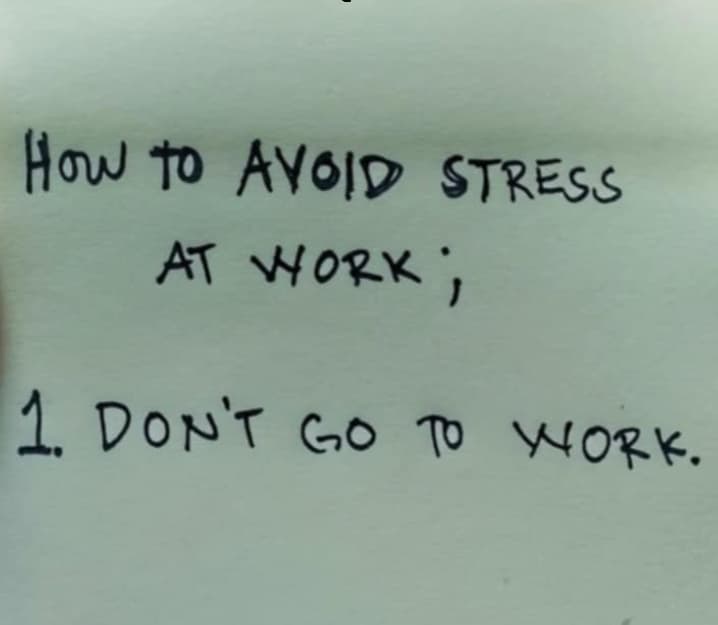 How to AVOID STRESS
AT WORK;
1. DON'T GO TO WORK.